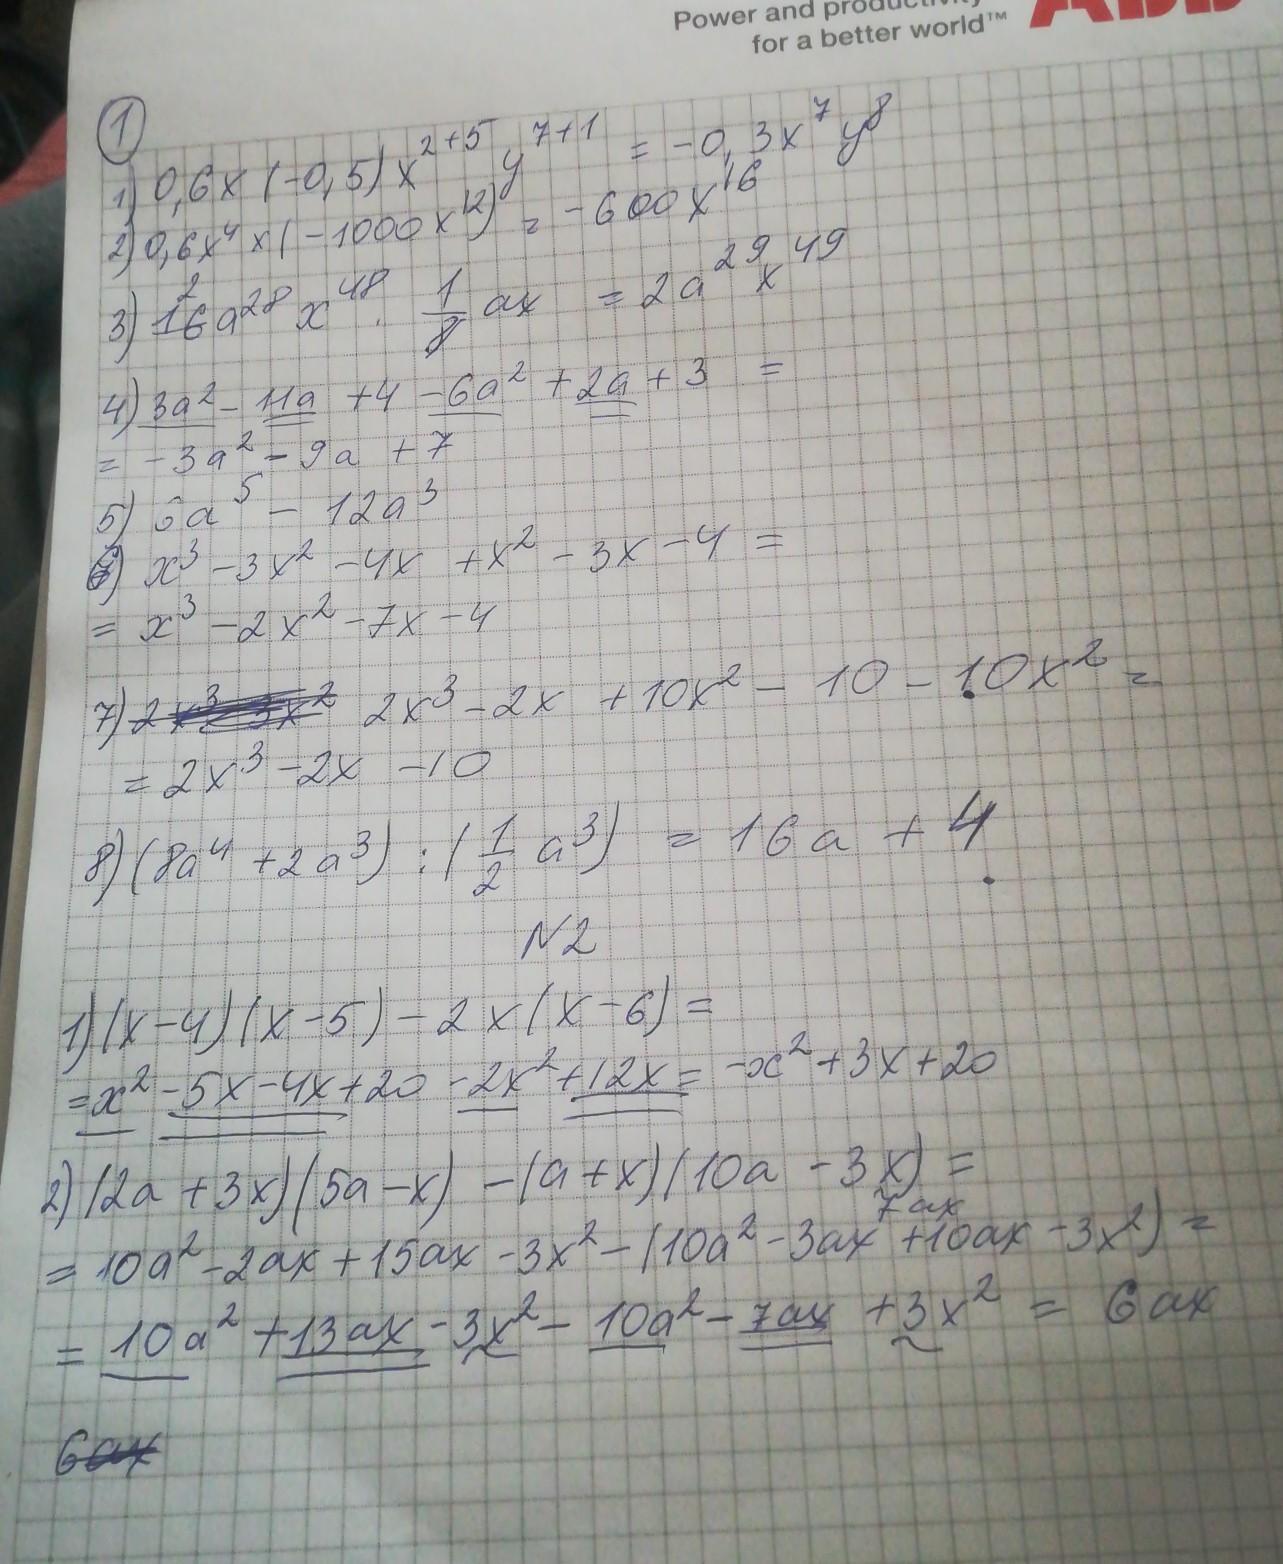 Power and productivity
for a better world™ ABB
①
1) 0,6x(-0,5)x²⁺⁵y⁷⁺¹ = -0,3x⁷y⁸
2) 0,6x⁴x(-1000x¹²) = -600x¹⁶
3) 16²a²⁸x⁴⁸ · 1/8 ax = 2a²⁹x⁴⁹
4) 3a² - 11a + 4 - 6a² + 2a + 3 =
= -3a² - 9a + 7
5) 6a⁵ - 12a³
6) x³ - 3x² - 4x + x² - 3x - 4 =
= x³ - 2x² - 7x - 4
7) 2x³ - 2x + 10x² - 10 - 10x² =
= 2x³ - 2x - 10
8) (8a⁴ + 2a³) : (1/2 a³) = 16a + 4.
N2
1) (x-4)(x-5) - 2x(x-6) =
= x² - 5x - 4x + 20 - 2x² + 12x = -x² + 3x + 20
2) (2a + 3x)(5a - x) - (a + x)(10a - 3x) =
7ax
= 10a² - 2ax + 15ax - 3x² - (10a² - 3ax + 10ax - 3x²) =
= 10a² + 13ax - 3x² - 10a² - 7ax + 3x² = 6ax
6ax